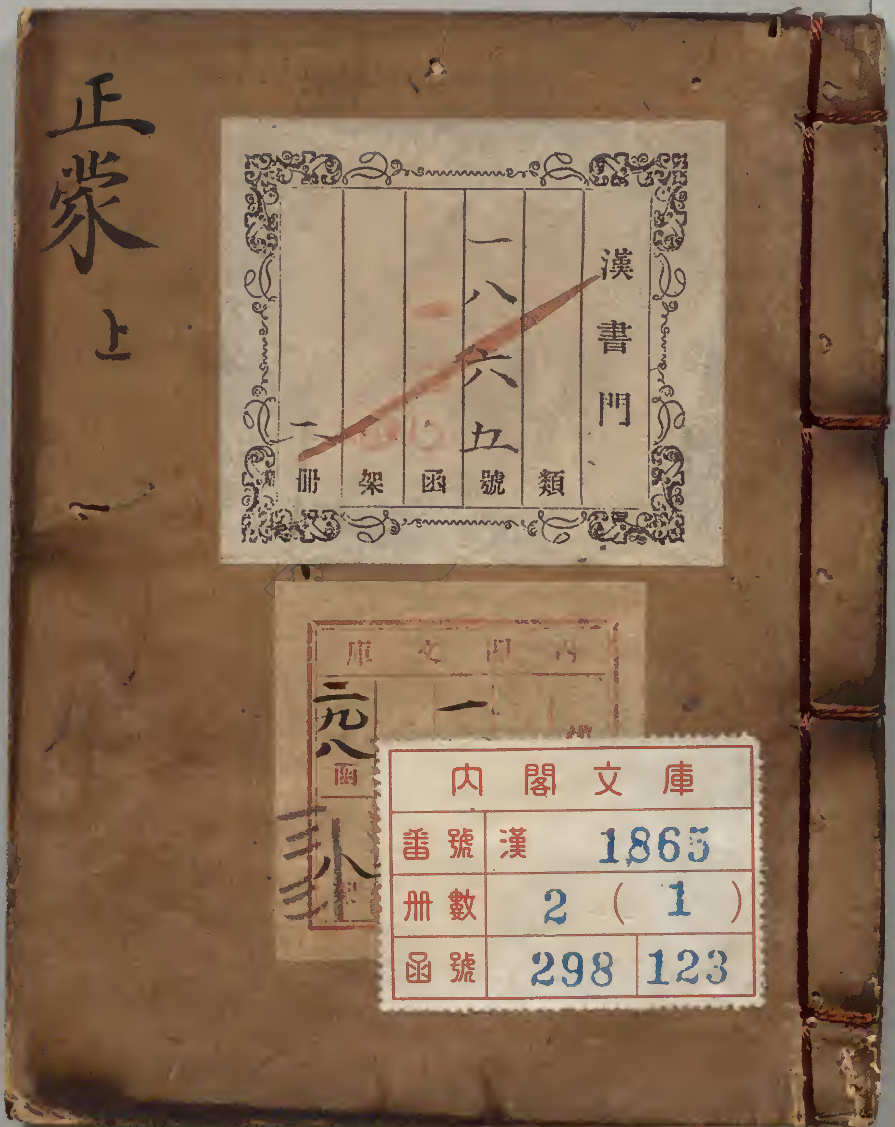 正蒙 上
一
漢書門
類
一八六五號
函
架
二冊
庫文閣内
一
二九八
函
八
内閣文庫
番號 漢 1865
冊數 2 ( 1 )
函號 298 123